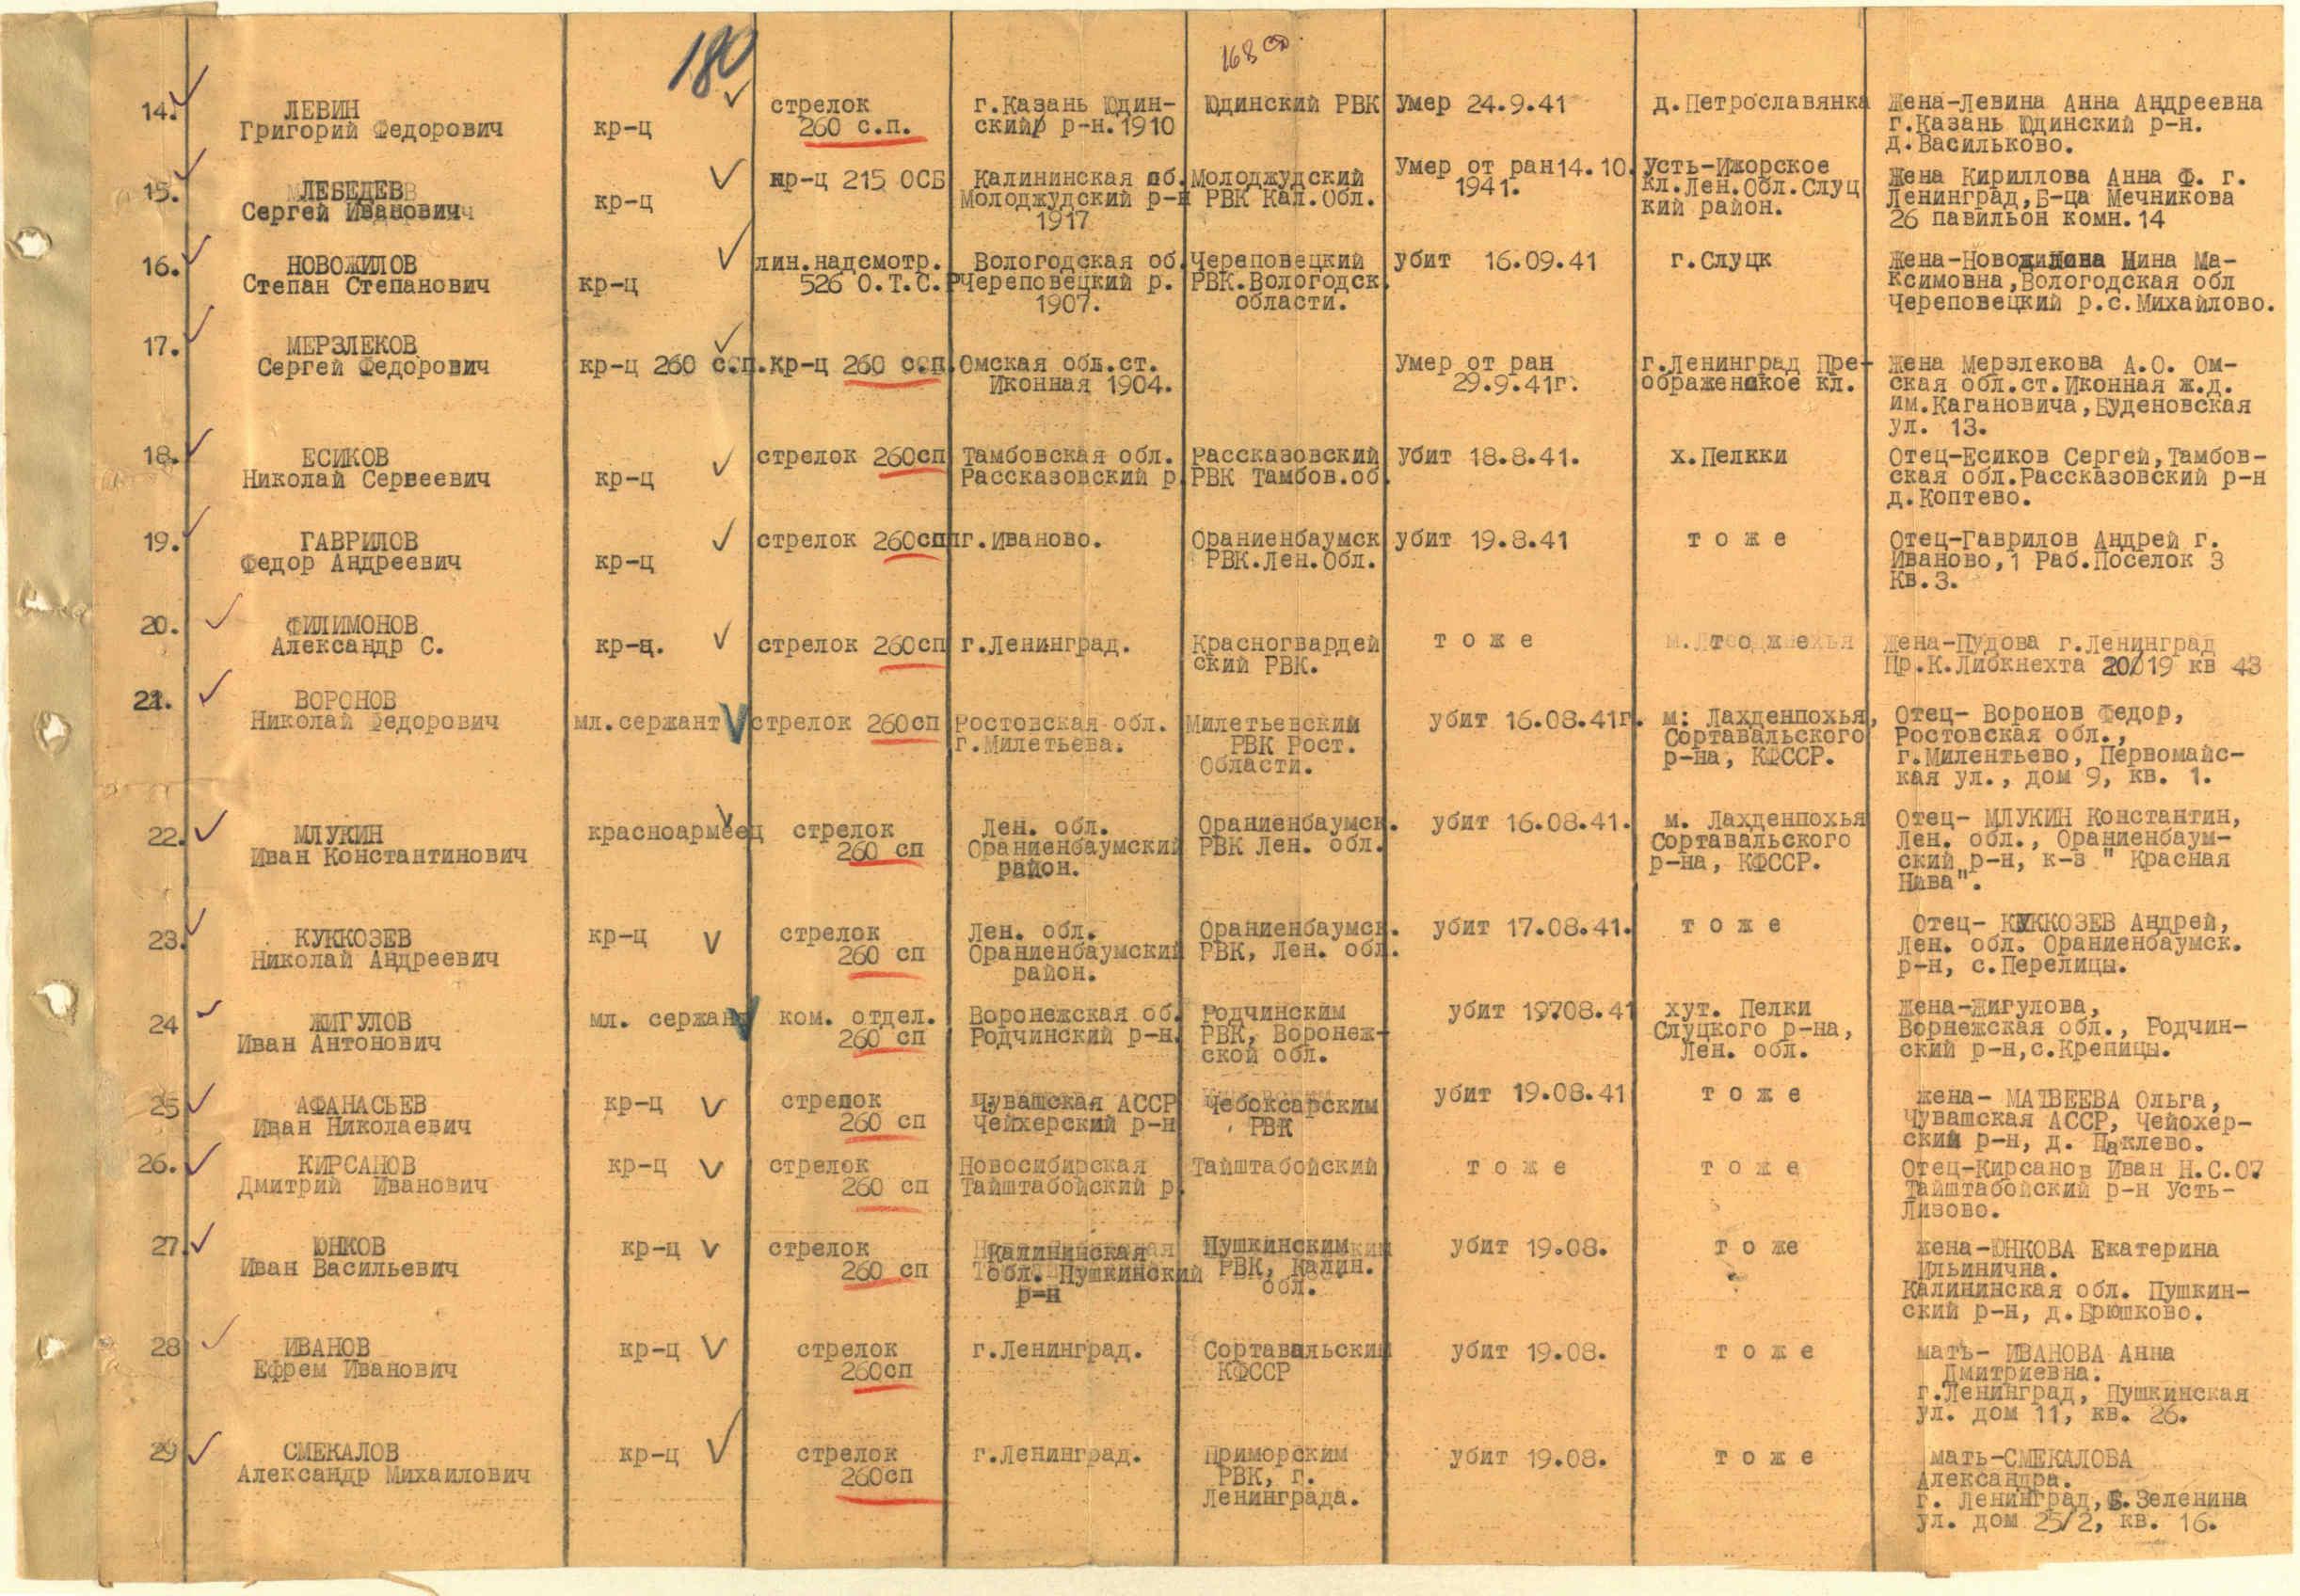 180
168 сд
14.
ЛЕВИН
Григорий Федорович
кр-ц
стрелок
260 с.п.
г.Казань Юдин-
ский р-н. 1910
Юдинский РВК
Умер 24.9.41
д.Петрославянка
Жена-Левина Анна Андреевна
г.Казань Юдинский р-н.
д.Васильково.
15.
ЛЕБЕДЕВ
Сергей Иванович
кр-ц
кр-ц 215 ОСБ
Калининская об.
Молоджудский р-н
1917
Молоджудский
РВК Кал.Обл.
Умер от ран14.10.
1941.
Усть-Ижорское
кл.Лен.Обл.Слуц
кий район.
Жена Кириллова Анна Ф. г.
Ленинград,Б-ца Мечникова
26 павильон комн.14
16.
НОВОЖИЛОВ
Степан Степанович
кр-ц
лин.надсмотр.
526 О.Т.С.Р
Вологодская об.
Череповецкий р.
1907.
Череповецкий
РВК.Вологодск.
области.
убит 16.09.41
г.Слуцк
Жена-Новожилова Нина Ма-
ксимовна,Вологодская обл
Череповецкий р.с.Михайлово.
17.
МЕРЗЛЕКОВ
Сергей Федорович
кр-ц 260 с.п.
кр-ц 260 с.п.
Омская обл.ст.
Иконная 1904.
Умер от ран
29.9.41г.
г.Ленинград Пре-
ображенское кл.
Жена Мерзлекова А.О. Ом-
ская обл.ст.Иконная ж.д.
им.Кагановича,Буденовская
ул. 13.
18.
ЕСИКОВ
Николай Сергеевич
кр-ц
стрелок 260сп
Тамбовская обл.
Рассказовский р.
Рассказовский
РВК Тамбов.об.
Убит 18.8.41.
х.Пелкки
Отец-Есиков Сергей,Тамбов-
ская обл.Рассказовский р-н
д.Коптево.
19.
ГАВРИЛОВ
Федор Андреевич
кр-ц
стрелок 260сп
г.Иваново.
Ораниенбаумск
РВК.Лен.Обл.
убит 19.8.41
т о ж е
Отец-Гаврилов Андрей г.
Иваново,1 Раб.Поселок 3
Кв.3.
20.
ФИЛИМОНОВ
Александр С.
кр-ц.
стрелок 260сп
г.Ленинград.
Красногвардей
ский РВК.
т о ж е
т о ж е
Жена-Пудова г.Ленинград
Пр.К.Либкнехта 20/19 кв 43
21.
ВОРОНОВ
Николай Федорович
мл.сержант
стрелок 260сп
Ростовская обл.
г.Милетьева.
Милетьевским
РВК Рост.
Области.
убит 16.08.41г.
м: Лахденпохья,
Сортавальского
р-на, КФССР.
Отец- Воронов Федор,
Ростовская обл.,
г.Милентьево, Первомайс-
кая ул., дом 9, кв. 1.
22.
МЛУКИН
Иван Константинович
красноармеец
стрелок
260 сп
Лен. обл.
Ораниенбаумский
район.
Ораниенбаумск.
РВК Лен. обл.
убит 16.08.41.
м. Лахденпохья
Сортавальского
р-на, КФССР.
Отец- МЛУКИН Константин,
Лен. обл., Ораниенбаум-
ский р-н, к-з " Красная
Нива".
23.
КУККОЗЕВ
Николай Андреевич
кр-ц
стрелок
260 сп
Лен. обл.
Ораниенбаумский
район.
Ораниенбаумск.
РВК, Лен. обл.
убит 17.08.41.
т о ж е
Отец- КУККОЗЕВ Андрей,
Лен. обл. Ораниенбаумск.
р-н, с.Перелицы.
24
ЖИГУЛОВ
Иван Антонович
мл. сержант
ком. отдел.
260 сп
Воронежская об.
Родчинский р-н.
Родчинским
РВК, Воронеж-
ской обл.
убит 19708.41
хут. Пелки
Слуцкого р-на,
Лен. обл.
жена-Жигулова,
Ворнежская обл., Родчин-
ский р-н,с.Крепицы.
25
АФАНАСЬЕВ
Иван Николаевич
кр-ц
стрелок
260 сп
Чувашская АССР
Чейхерский р-н
Чебоксарским
РВК
убит 19.08.41
т о ж е
жена- МАТВЕЕВА Ольга,
Чувашская АССР, Чейохер-
ский р-н, д. Паклево.
26.
КИРСАНОВ
Дмитрий Иванович
кр-ц
стрелок
260 сп
Новосибирская
Тайштабойский р.
Тайштабойский
т о ж е
т о ж е
Отец-Кирсанов Иван Н.С.О7
Тайштабойский р-н Усть-
Лизово.
27.
ЮНКОВ
Иван Васильевич
кр-ц
стрелок
260 сп
Калининская
обл. Пушкинский
р-н
Пушкинским
РВК, Калин.
обл.
убит 19.08.
т о же
жена-ЮНКОВА Екатерина
Ильинична.
Калининская обл. Пушкин-
ский р-н, д.Брюшково.
28
ИВАНОВ
Ефрем Иванович
кр-ц
стрелок
260сп
г.Ленинград.
Сортавальский
КФССР
убит 19.08.
т о ж е
мать- ИВАНОВА Анна
Дмитриевна.
г.Ленинград, Пушкинская
ул. дом 11, кв. 26.
29
СМЕКАЛОВ
Александр Михаилович
кр-ц
стрелок
260сп
г.Ленинград.
Приморским
РВК, г.
Ленинграда.
убит 19.08.
т о ж е
мать-СМЕКАЛОВА
Александра.
г. Ленинград,Б.Зеленина
ул. дом 25/2, кв. 16.